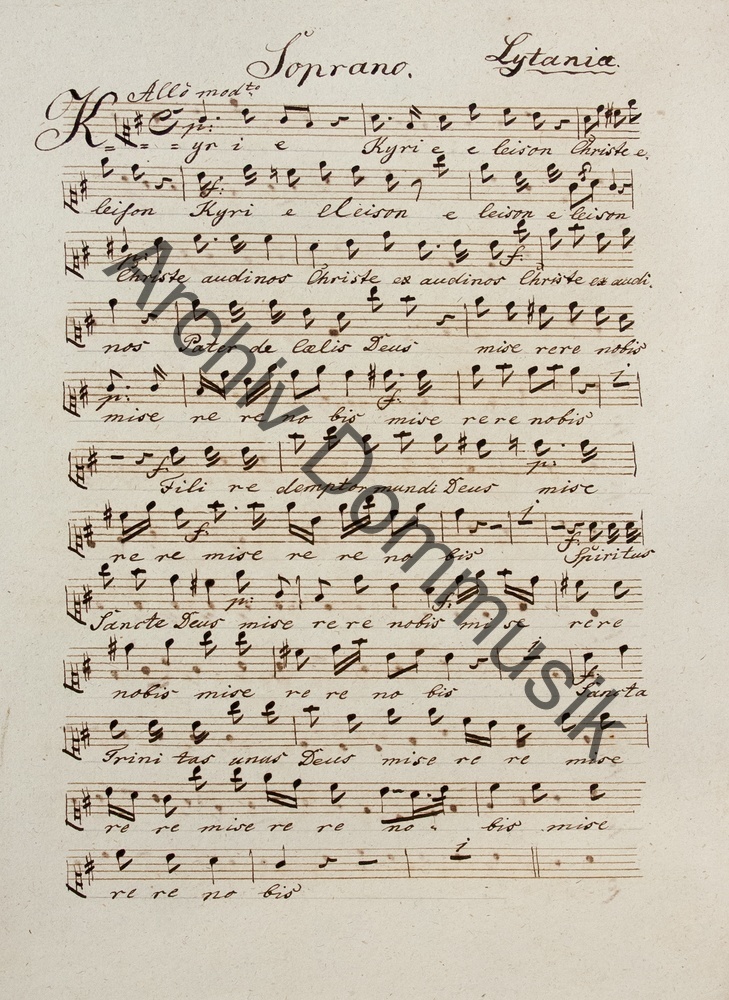 Soprano. Lytania.
Allo modto
p:
K = = = yri e Kyri e e leison Christe e,
f:
leison Kyri e eleison e leison e leison
p:
f.
Christe audinos Christe ex audinos Christe ex audi.
nos Pater de Cælis Deus mise rere nobis
p: f: 1
mise re re no bis mise rere nobis
f. p:
Fili re demptor mundi Deus mise
f. 1 f.
re re mise re re no bis Spiritus
p: f.
Sancte Deus mise re re nobis mi se rere
1 f.
nobis mise re re no bis Sancta
Trini tas unus Deus mise re re mise
re re mise re re no - bis mise
1
re re no bis
Archiv Dommusik